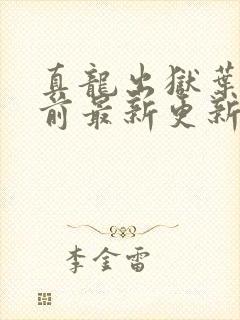 真龍出獄葉
前最新更新
李金雷